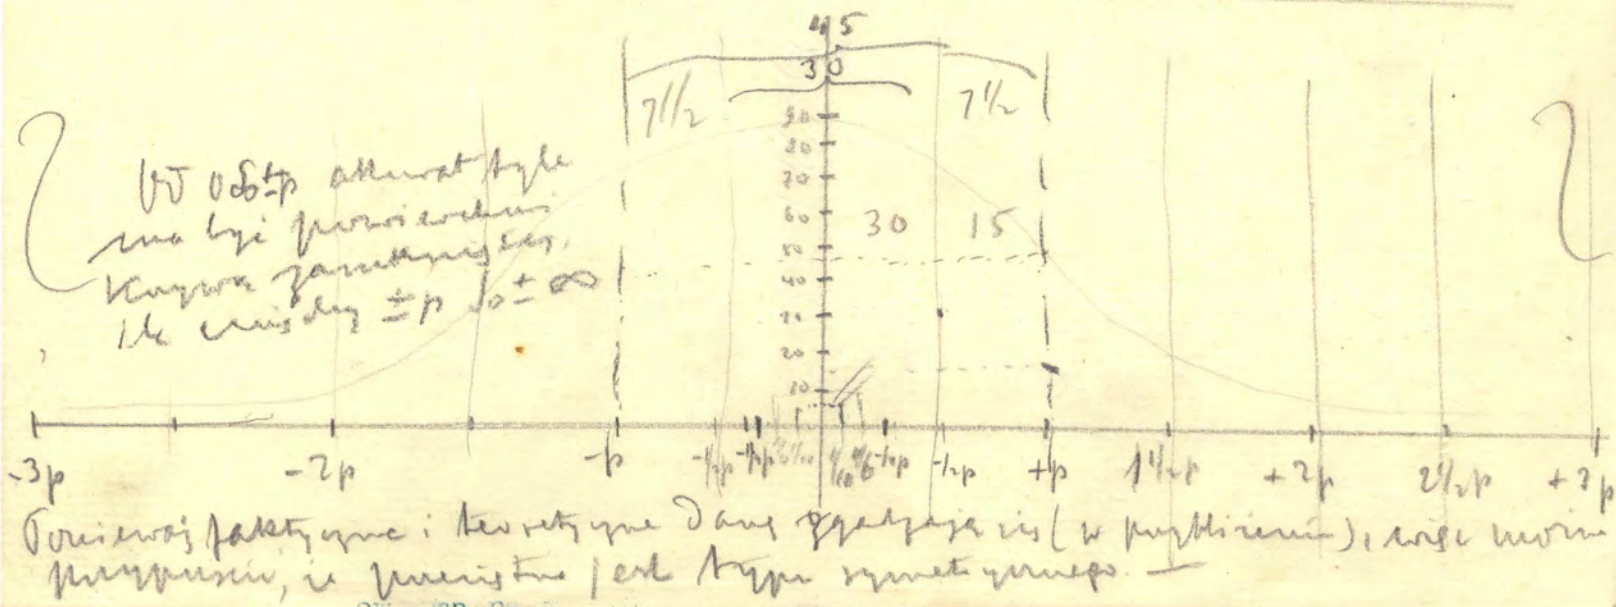 45
30
7 1/2 7 1/2
90
80
70
60 30 15
50
40
20
10
W od ±p akurat tyle
ma być powierzchni
krzywą zamkniętej,
ile między ±p do ±∞
-3p -2p -p -1/2p +p 1 1/2p +2p 2 1/2p +3p
Ponieważ faktyczne i teoretyczne dane zgadzają się (w przybliżeniu), więc można
przypuścić, że jest typu symetrycznego. —